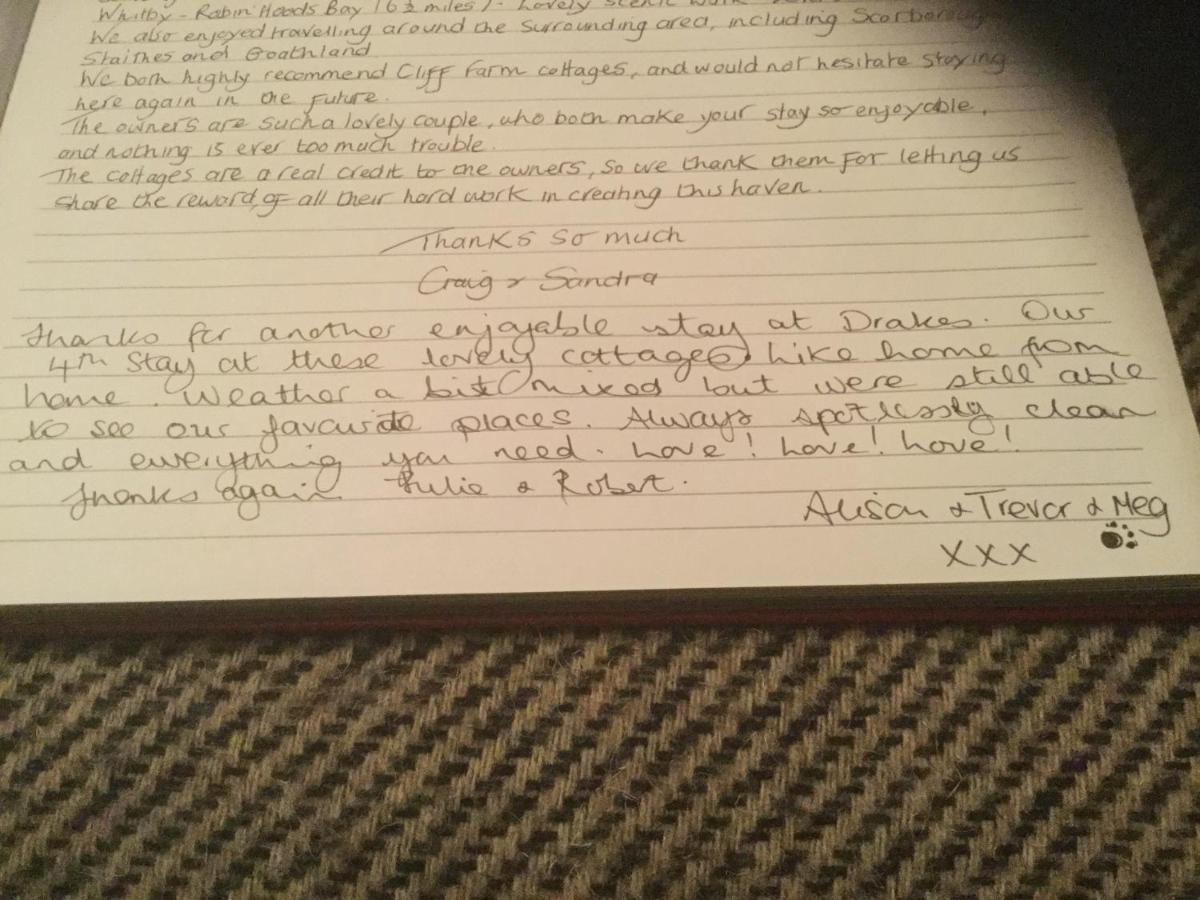 Whitby - Robin Hoods Bay (6½ miles) - Lovely scenic walk
We also enjoyed travelling around the surrounding area, including Scarborough
Staithes and Goathland
We both highly recommend Cliff Farm cottages, and would not hesitate staying
here again in the future.
The owners are such a lovely couple, who both make your stay so enjoyable,
and nothing is ever too much trouble.
The cottages are a real credit to the owners, so we thank them for letting us
share the reward, of all their hard work in creating this haven.
Thanks so much
Craig & Sandra
Thanks for another enjoyable stay at Drakes. Our
4th Stay at these lovely cottages, like home from
home. Weather a bit mixed but were still able
to see our favourite places. Always spotlessly clean
and everything you need. Love! Love! Love!
Thanks again Julie & Robert.
Alison & Trevor & Meg
xxx